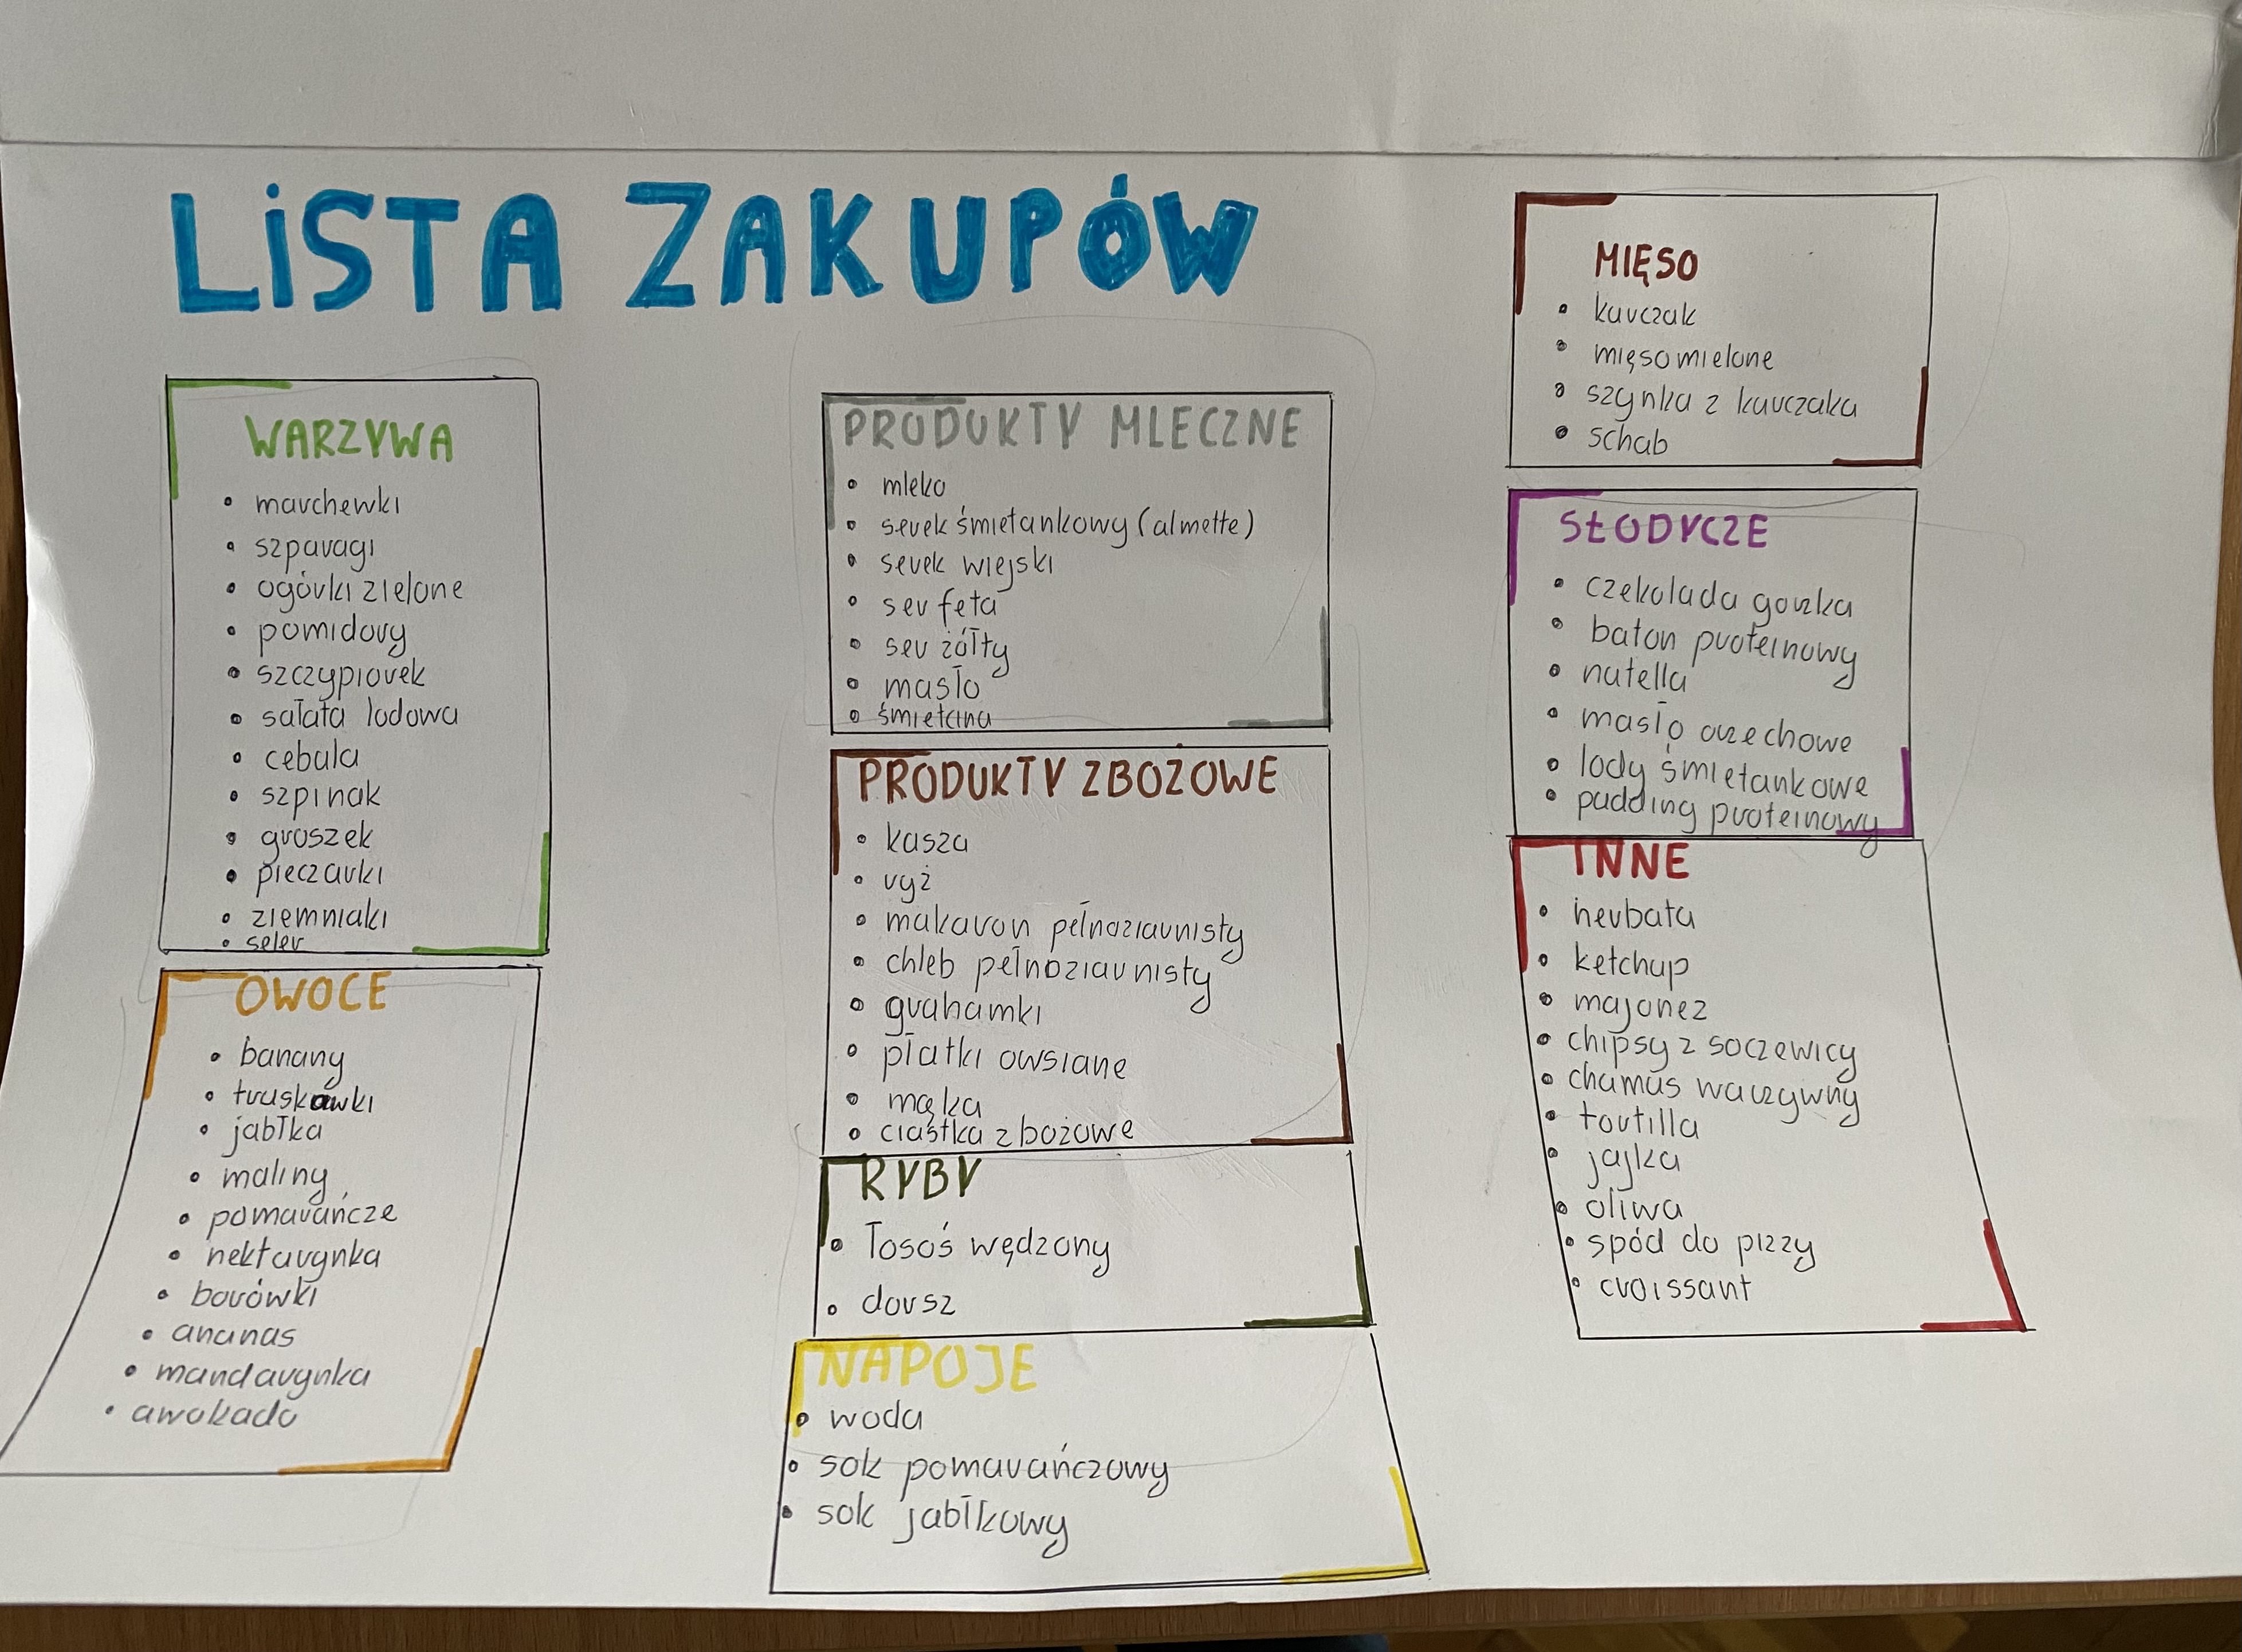 LiSTA ZAKUPÓW
WARZYWA
• marchewki
• szparagi
• ogórki zielone
• pomidory
• szczypiorek
• sałata lodowa
• cebula
• szpinak
• groszek
• pieczarki
• ziemniaki
• seler
OWOCE
• banany
• truskawki
• jabłka
• maliny
• pomarańcze
• nektarynka
• borówki
• ananas
• mandarynka
• awokado
PRODUKTY MLECZNE
• mleko
• serek śmietankowy (almette)
• serek wiejski
• ser feta
• ser żółty
• masło
• śmietana
PRODUKTY ZBOZOWE
• kasza
• ryż
• makaron pełnoziarnisty
• chleb pełnoziarnisty
• grahamki
• płatki owsiane
• mąka
• ciastka zbożowe
RYBY
• łosoś wędzony
• dorsz
NAPOJE
• woda
• sok pomarańczowy
• sok jabłkowy
MIĘSO
• kurczak
• mięso mielone
• szynka z kurczaka
• schab
SŁODYCZE
• czekolada gorzka
• baton proteinowy
• nutella
• masło orzechowe
• lody śmietankowe
• pudding proteinowy
INNE
• herbata
• ketchup
• majonez
• chipsy z soczewicy
• chumus warzywny
• tortilla
• jajka
• oliwa
• spód do pizzy
• croissant